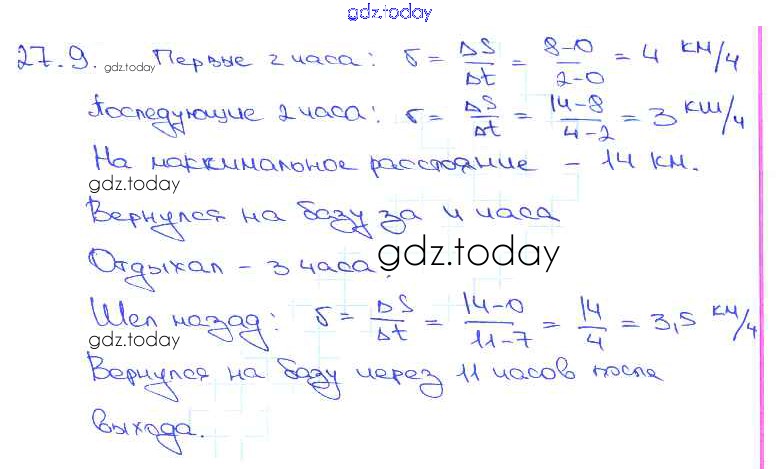 gdz.today
27.9. gdz.today Первые 2 часа: υ = ΔS/Δt = 8-0/2-0 = 4 км/ч
Последующие 2 часа: υ = ΔS/Δt = 14-8/4-2 = 3 км/ч
На максимальное расстояние - 14 км.
gdz.today
Вернулся на базу за 4 часа
Отдыхал - 3 часа.
gdz.today
Шел назад: υ = ΔS/Δt = 14-0/11-7 = 14/4 = 3,5 км/ч
gdz.today
Вернулся на базу через 11 часов после
выхода.